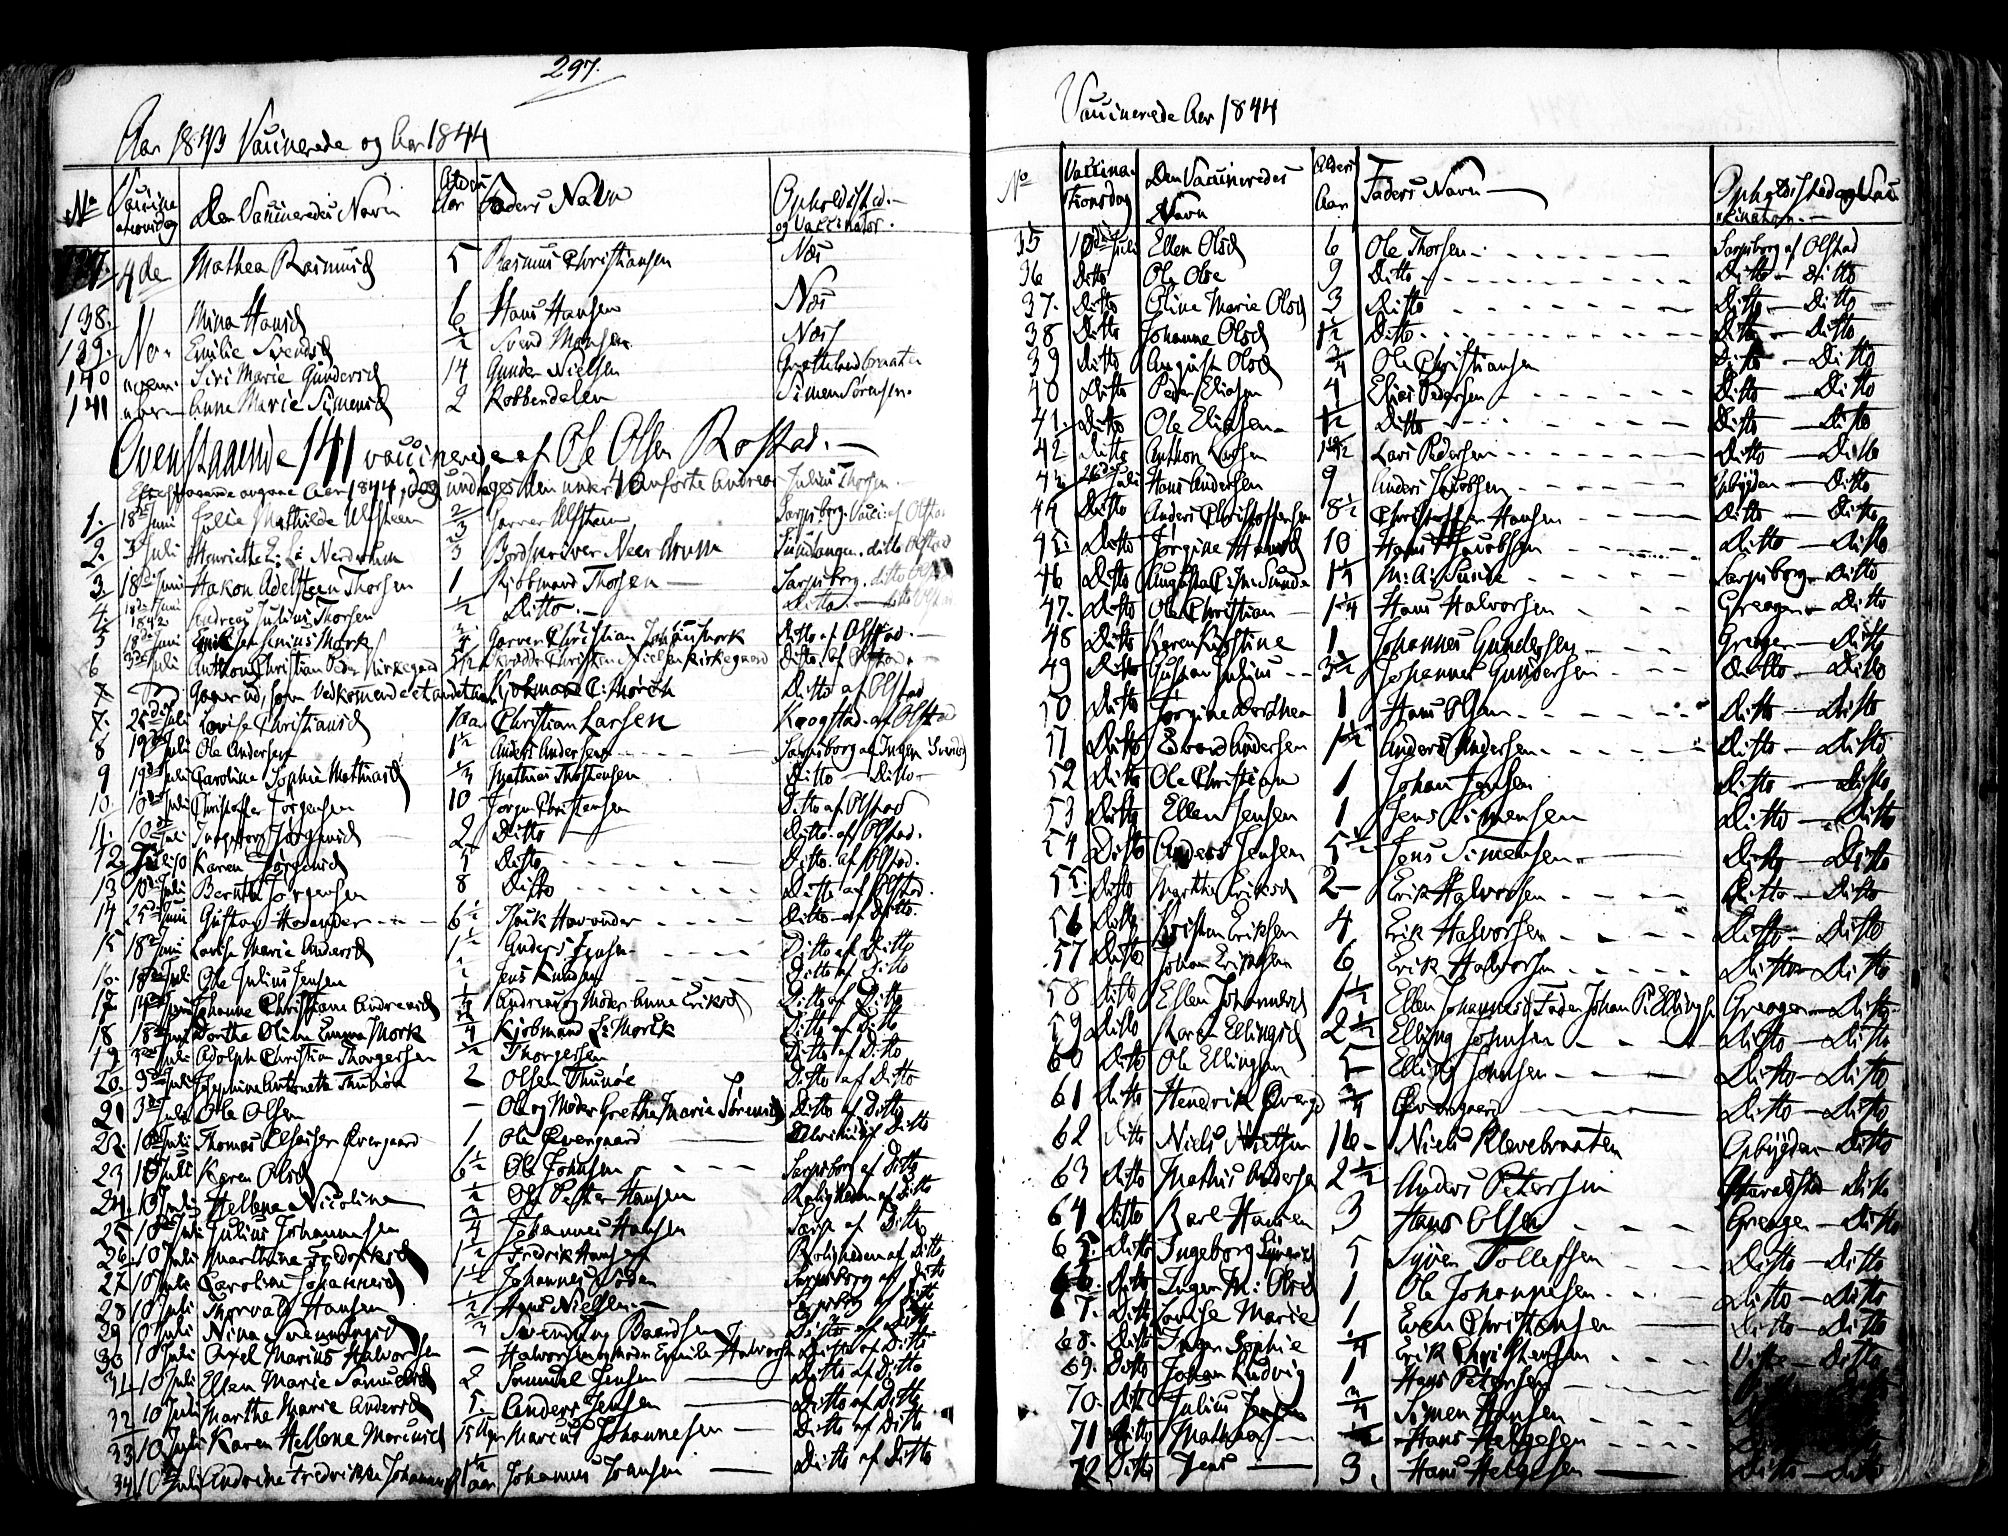 297.
Aar 1843 Vaccinerede og Aar 1844
No Vaccinationsdag Den Vaccineredes Navn Alder Aar Faders Navn Opholdssted og Vaccinator.
4de Mathea Rasmusd 5 Rasmus Christiansen Næs
138. Mina Hansd 6 Hans Hansen Næs
139. No- Emilie Svendsd 1/2 Svend Næs
140 Siri Marie Gundersd 14 Gunder Nielsen
141 Anne Marie Simensd 2 Robbendalen Simen Sørensen.
Ovenstaaende 141 vaccinerede af Ole Olsen Rostad.
Aar 1844, dog undtages den under 4 anførte Andreas Julius Thorsen.
1. 18de Juni Julie Mathilde Ulfsteen 2/3 Garver Ulfsteen Sarpsborg. Vacc: af Olstad
2. 3de Juli Henriette E: L: Neerdrum 3 Neerdrum ditto Olstad
3. 18de Juni Hakon Adelsteen Thorsen 1 Kjøbmand Thorsen Sarpsborg. ditto
4. 18de Juni 1842 Andreas Julius Thorsen 1/2 Ditto. Ditto.
5 18de Juni Mørk 3/4 Garver Christian Mørk Ditto af Olstad.
6 3de Juli Anthon Christian Peder Kirkegaard 1 1/2 Christian Nielsen Kirkegaard Ditto. af Olstad.
7 Gaaer ud, som Vedkommende et andet Kjøbmand C: Mørch Ditto af Olstad
7. 25de Juli Lovise Christiansd 1 aar Christian Larsen af Olstad
8 19de Juli Ole Andersen 1 1/2 Anders Andersen Sarpsborg af Inger Svendsd
9 19de Juli Caroline Sophie Mathiasd 1/3 Mathias Thorstensen Ditto - Ditto
10. 10de Juli Christoffer Jørgensen 10 Jørgen Christensen Ditto af Olstad
11. 10de Juli Ingeborg Jørgensd 2 Ditto Ditto. af Olstad.
12. Karen Jørgensd 5 Ditto Ditto. af Olstad.
13 10de Juli Bernth Jørgensen 8 Ditto Ditto af Olstad.
14 25de Juni Gustav Hovander 6 1/2 Isak Hovander Ditto af ditto.
15 18de Juni Lovise Marie Andersd 1 1/2 Anders Jensen Ditto af Ditto
16. 18de Juli Ole Julius Jensen 1/2 Jens Knudsen Ditto af Ditto
17. Johanne Christiane Andreasd 1/4 Andreas og Moder Anne Eriksd Ditto af Ditto
18 18de Juni Dorthe Oline Emma Mørk 3/4 Kjøbmand C: Mørk Ditto af Ditto
19 3de Juli Adolph Christian Thorgersen 1/2 Thorgersen Ditto af Ditto
20. 3de Juli Josephine Antonette Thunøe 2 Olsen Thunøe Ditto af Ditto
21 3de Juli Ole Olsen - Ole og Moder Grethe Marie Sørensd Ditto af Ditto
22. 10de Juli Thomas Elfasen Øvergaard 1 Ole Øvergaard af Ditto
23 10de Juli Karen Olsd 6 1/2 Ole Johnsen Sarpsborg af Ditto
24. 10 Juli Hellena Nicoline 1/2 Ole Petter Hansen Roligheden af Ditto
25. 10 Juli Julius Johannesen 3/4 Johannes Hansen af Ditto
26. 10 Juli Marthine Fredriksd 1 1/2 Fredrik Hansen Roligheden af Ditto
27 10 Juli Caroline Johannesd 1 1/2 Johannes Soden Sarpsborg af Ditto
28 10 Juli Thorvald Hansen 1/2 Hans Nielsen Sarpsborg af Ditto
29 10 Juli Nina Svenningsd 2/3 Svenning Baardsen Ditto af Ditto
30 10 Juli Axel Marius Halvorsen - Halvorsen og Moder Emilie Halvorsen Ditto af Ditto
31 10 Juli Ellen Marie Samuelsd 2 Samuel Jensen Ditto af Ditto
32 10 Juli Marthe Marie Andersd 5. Anders Jensen Ditto af Ditto
33 10 Juli Karen Hellene Mariusd 15 Uger Marius Johannesen Ditto af Ditto
34 10de Juli Andrine Fredrikke Johannesd 1 1/2 aar Johannes Johansen Ditto af Ditto
Vaccinerede Aar 1844
No Vaccinationsdag Den Vaccineredes Navn Alder Aar Faders Navn Opholdsted og Vaccinator.
35 10de Juli Ellen Olsd 6 Ole Thorsen Sarpsborg af Olstad
36 Ditto Ole Olse 9 Ditto Ditto - ditto
37. Ditto Oline Marie Olsd 3 Ditto Ditto - Ditto
38 Ditto Johanne Olsd 1 1/2 Ditto Ditto - Ditto
39 Ditto August Olsd 3/4 Ole Christiansen Ditto - Ditto
40 Ditto Peder Eliasen 4 Elias Pedersen Ditto - Ditto
41. Ditto Ole Eliasen 1/2 Ditto Ditto - Ditto
42 Ditto Anthon Larsen 1 1/2 Lars Pedersen Ditto - Ditto
43 Juli Hans Andersen 9 Anders Jacobsen Opbygden - Ditto
44 Ditto Anders Christoffersen 8 1/2 Christoffer Hansen Ditto - Ditto
45. Ditto Jørgine Hansd 10 Hans Jacobsen Ditto - Ditto
46 Ditto Augusta C: M: Sunde 1 1/4 M: A: Sunde Sarpsborg - Ditto
47. Ditto Ole Christian 1 1/4 Hans Halvorsen Greager - Ditto
48 Ditto Karen Kirstine 1 Johannes Gundersen Greager - Ditto
49 Ditto Gustav Julius 3 1/2 Johannes Gundersen Ditto - Ditto
50 Ditto Jørgine Dorthea 1 Hans Olsen Ditto - Ditto
51 Ditto Edvard Andersen 1 1/2 Anders Andersen Ditto - Ditto
52 Ditto Ole Christian 1 Johan Jensen Ditto - Ditto
53 Ditto Ellen Jensen 1 Jens Simensen Ditto - Ditto
54 Ditto Anders Jensen 5 1/2 Jens Simensen Ditto - Ditto
55 Ditto Marthe Eriksd 2 Erik Halvorsen Ditto - Ditto
56 Ditto Kristian Eriksen 4 Erik Halvorsen Ditto - Ditto
57 Ditto Johan Eriksen 6 Erik Halvorsen Ditto - Ditto
58 Ditto Ellen Johannesd 1 1/2 Ellen Johannesd Fader Johan P: Ellingsen Greager - Ditto
59 Ditto Karen Ellingsd 2 1/2 Elling Johnsen Ditto - Ditto
60 Ditto Ole Ellingsen 5 Elling Johnsen Ditto - Ditto
61 Ditto Hendrik Øverga 3/4 Øvergaard Ditto - Ditto
62 Ditto Niels Nielsen 16 Niels Klevebraaten Opbygden - Ditto
63 Ditto Mathis Andersen 2 1/2 Anders Petersen Ditto
64 Ditto Karl Hansen 3 Hans Olsen Greager - Ditto
65. Ditto Ingeborg 5 Syver Tollefsen Ditto - Ditto
66. Ditto Inger M: Olsd 1 Ole Johannesen Ditto - Ditto
67. Ditto Lovise Marie 1 Even Christensen Ditto - Ditto
68. Ditto Inger Sophie 1/4 Erik Christensen Ditto - Ditto
69. Ditto Johan Ludvig 1 Hans Petersen
70. Ditto Julius Jensen 3/4 Simen Hansen
71 Ditto Mathea Hans Helgesen Ditto
72 Ditto Jens 3. Hans Helgesen Ditto - Ditto